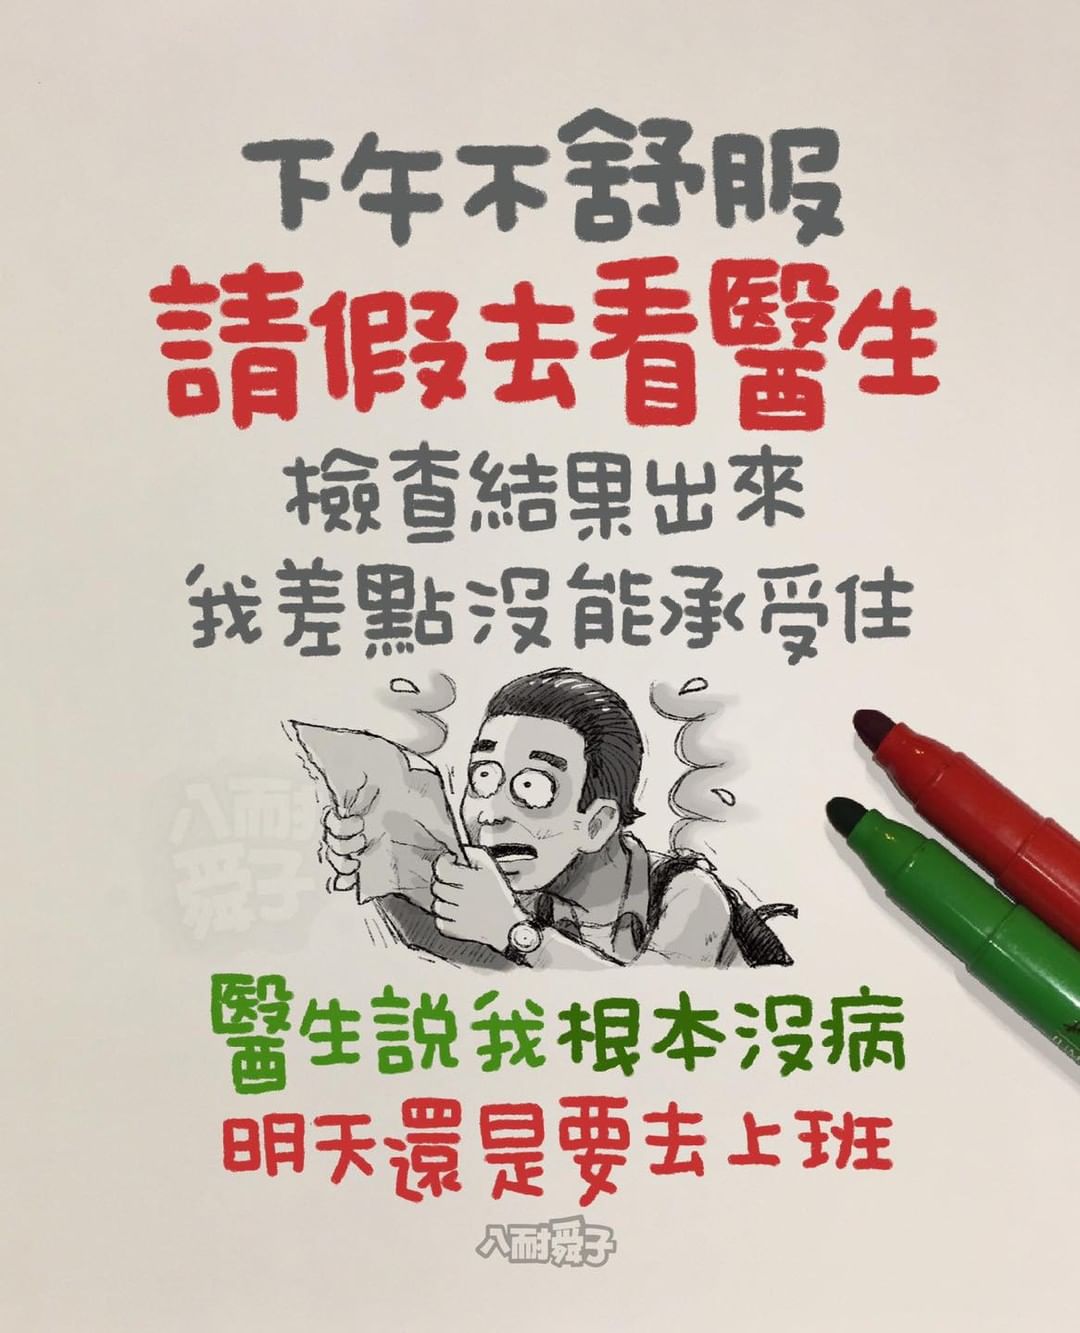 下午不舒服
請假去看醫生
檢查結果出來
我差點沒能承受住
八耐舜子
醫生説我根本沒病
明天還是要去上班
八耐舜子